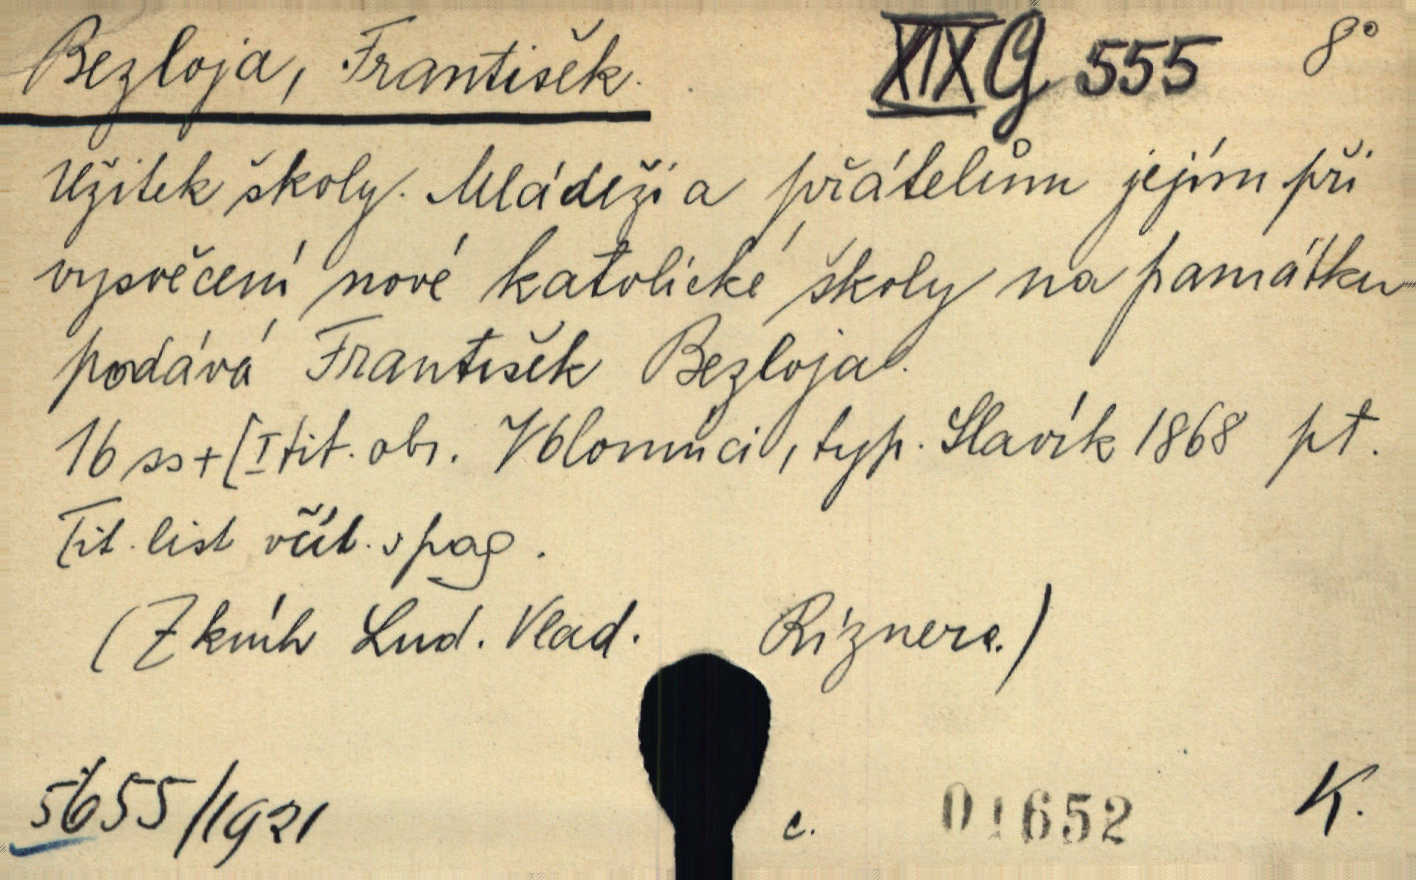 Bezloja, František. XIX G 555 8°
Užitek školy. Mládeži a přátelům jejím při
vysvěcení nové katolické školy na památku
podává František Bezloja.
16 ss + [I tit. obr. V Olomúci, typ. Slavík 1868 př.
Tit. list včít. v pag.
(Z knih Lud. Vlad. Riznera.)
5655/1921 c. 01652 K.